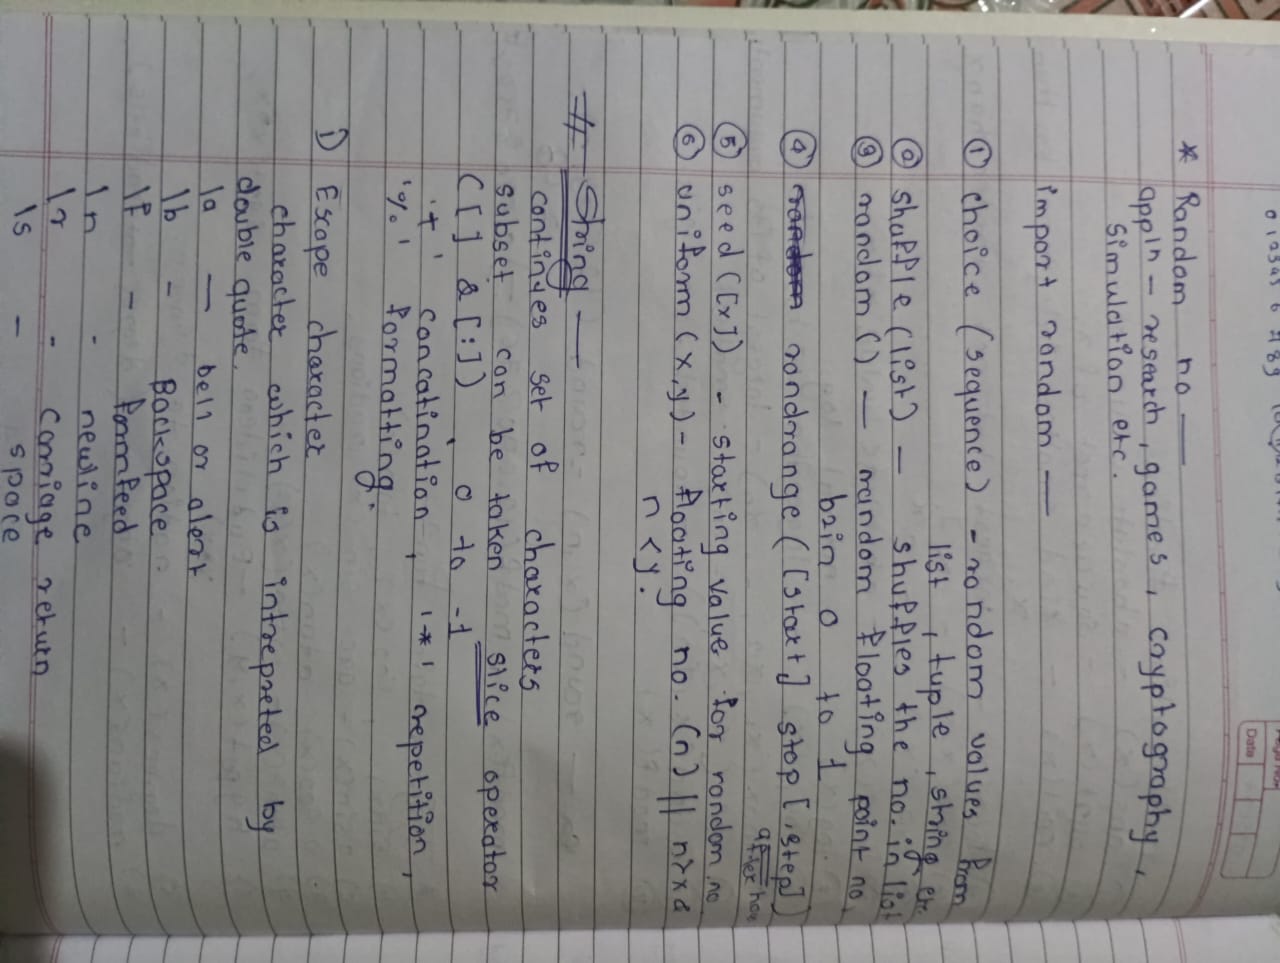 0 1 2 3 4 5 6 7 8 9
Page No.
Date
* Random no —
appln - research, games, cryptography,
simulation etc.
import random —
① choice (sequence) - random values from
list, tuple, string etc.
② shuffle (list) — shuffles the no. in list
③ random () — random floating point no.
bzin 0 to 1
④ random randrange ([start] stop [,step])
after how
⑤ seed ([x]) - starting value for random no
⑥ uniform (x,y) - floating no. (n) || n>x &
n<y.
# String —
continyes set of characters
subset can be taken slice operator
([] & [:]), 0 to -1
'+' concatination, '*' repetition,
'%' formatting.
1) Escape character
character which is intrepreted by
double quote.
\a — bell or alert
\b - Backspace
\f - formfeed
\n - newline
\r - carriage return
\s - space